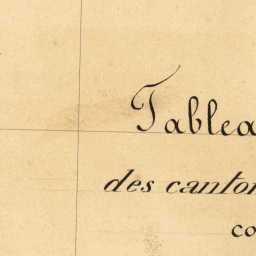 Tablea
des canton
co